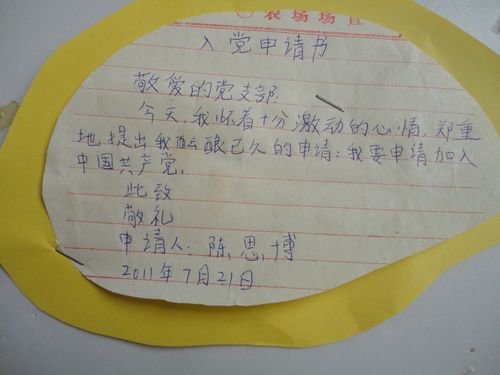 农场场宣
入党申请书
敬爱的党支部:
今天,我怀着十分激动的心情,郑重
地提出我酝酿已久的申请:我要申请加入
中国共产党。
此致
敬礼
申请人:陈思博
2011年7月21日